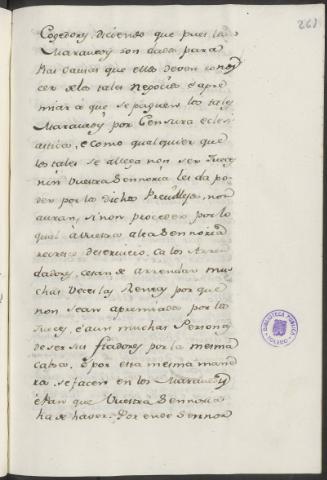 261
Cogedores, diciendo que pues los
Maravedis son dados para
tales causas que ellos deven conos
cer de los tales negocios e apre
miar a que se paguen los tales
Maravedis por Censura ecles
iastica, e como qualquier que
los tales se allega non ser Jueces
nin Vuestra Sennoria les da po
der por los dichos Previllejos, non
curan, sinon proceder por lo
qual a Vuestra alta Sennoria
recrece deservicio, ca los Arren
dadores, cesan de arrendar mu
chas veces las Rentas por que
non sean apremiados por los
Jueces, e aun muchas Personas
de ser sus fiadores por la mesma
cabsa. E por esta mesma mane
ra, se facen en los Maravedis
e Pan que Vuestra Sennoria
ha de haver. Por ende Sennor
BIBLIOTECA PUBLICA
TOLEDO